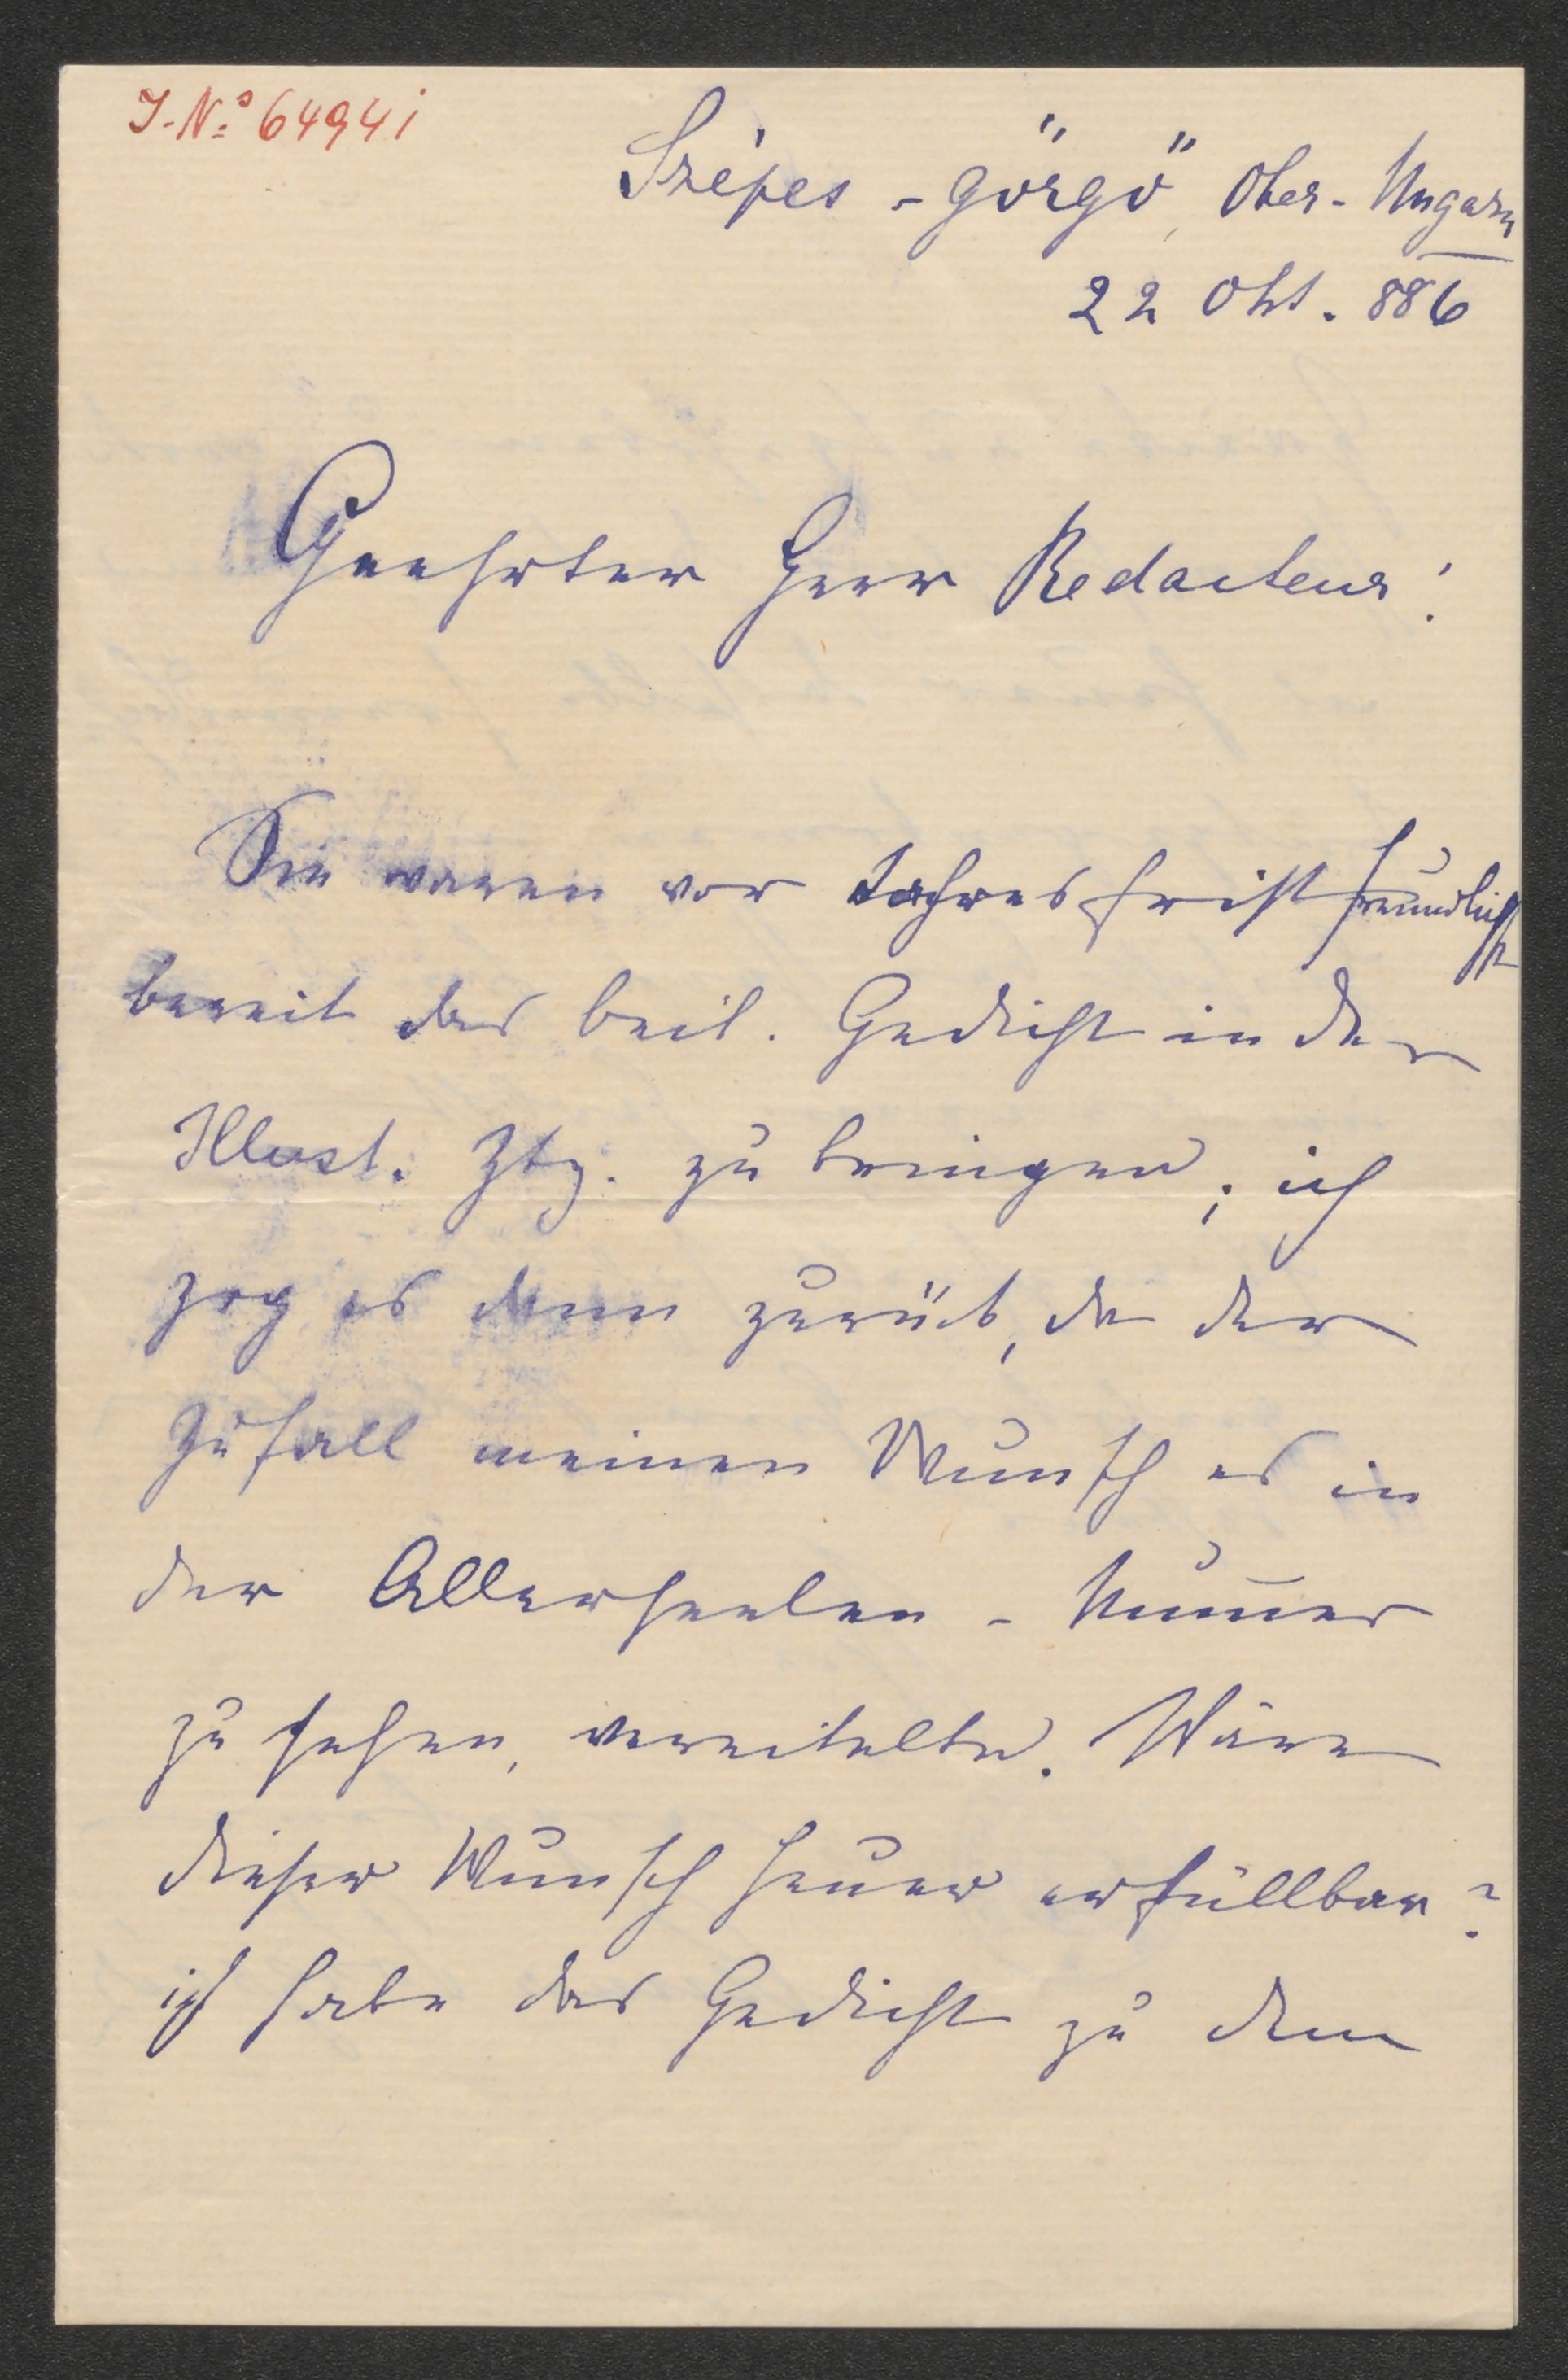 J-No: 64941
Szépes-Görgö, Ober-Ungarn
22 Okt. 886
Geehrter Herr Redacteur!
Sie waren vor Jahresfrist freundlichst
bereit das beil. Gedicht in der
Illust. Ztg. zu bringen; ich
zog es dann zurück, da der
Zufall meinen Wunsch es in
der Allerseelen-Num̅er
zu sehen, vereitelte. Wäre
dieser Wunsch heuer erfüllbar?
ich habe das Gedicht zu dem